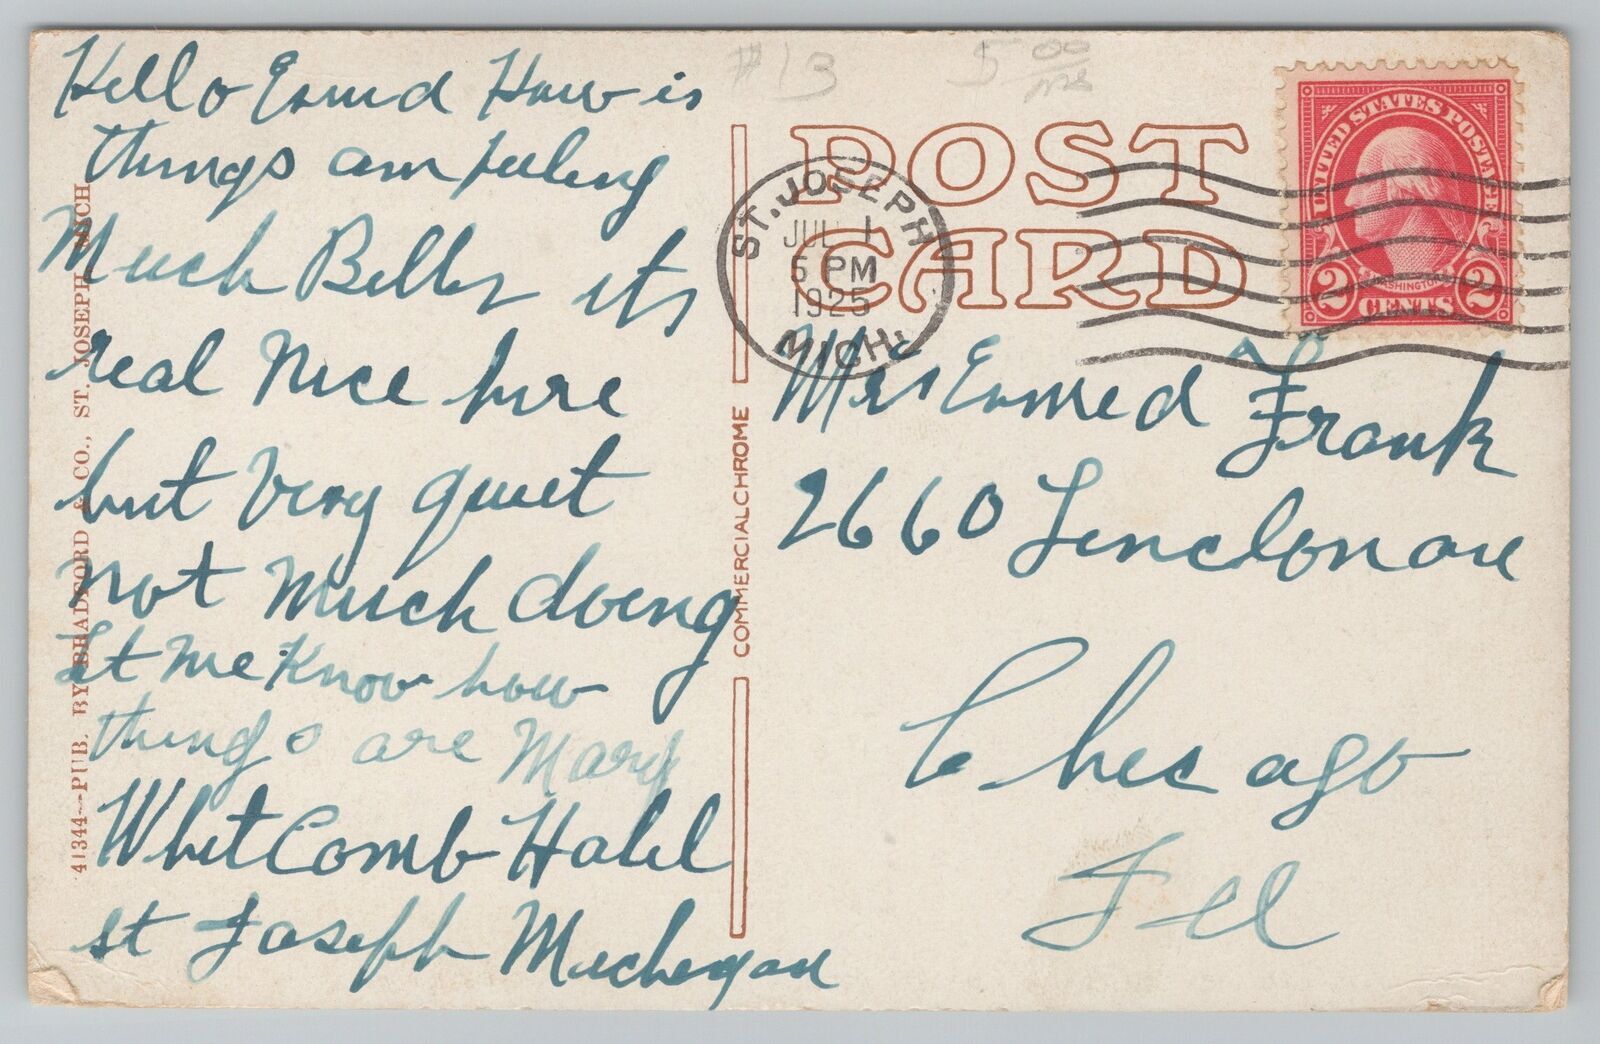 Hello Enud How is
things am feeling
Much Better its
real Nice here
but Very quiet
not Much doing
Let Me Know how
things are Mary
WhitComb Hotel
st Joseph Michegan
41344—PUB. BY BRADFORD & CO., ST. JOSEPH, MICH.
COMMERCIALCHROME
#13 5 00
POST
CARD
ST. JOSEPH
JUL 1
5 PM
1925
MICH.
UNITED STATES POSTAGE
WASHINGTON
2 CENTS 2
Mrs Frank
2660 ave
Chicago
Ill